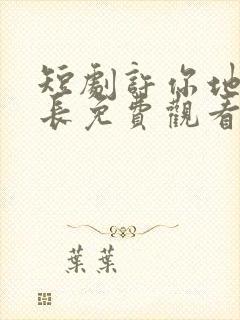 短劇許你地
長免費觀看
葉葉